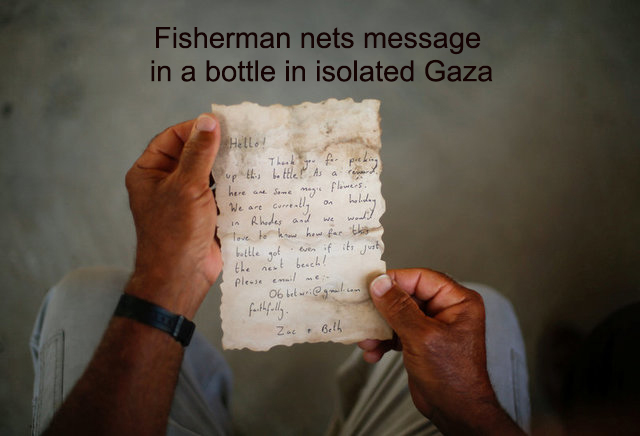 Fisherman nets message
in a bottle in isolated Gaza
Hello!
Thank you for picking
up this bottle! As a reward,
here are some magic flowers.
We are currently on holiday
in Rhodes and we would
love to know how far this
bottle got - even if its just
the next beach!
Please email me:-
06betwri@gmail.com
faithfully.
Zac + Beth